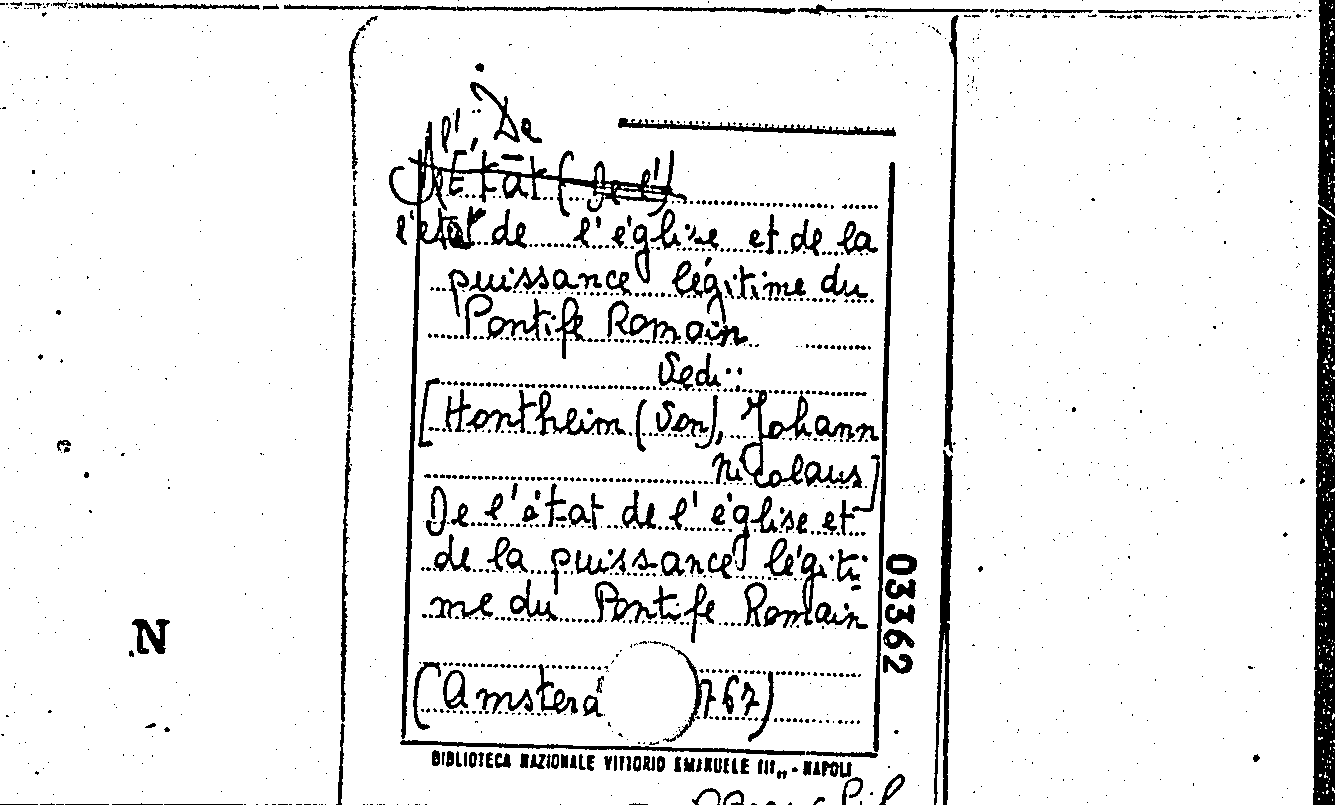 De
l'
Etat (De l')
l'etat de l'église et de la
puissance légitime du
Pontife Romain
Vedi:
[Hontheim (von), Johann
Nicolaus]
De l'état de l'église et
de la puissance légiti-
me du Pontife Romain
(Amsterd 767)
03362
BIBLIOTECA NAZIONALE VITTORIO EMANUELE III,, - NAPOLI
N
e